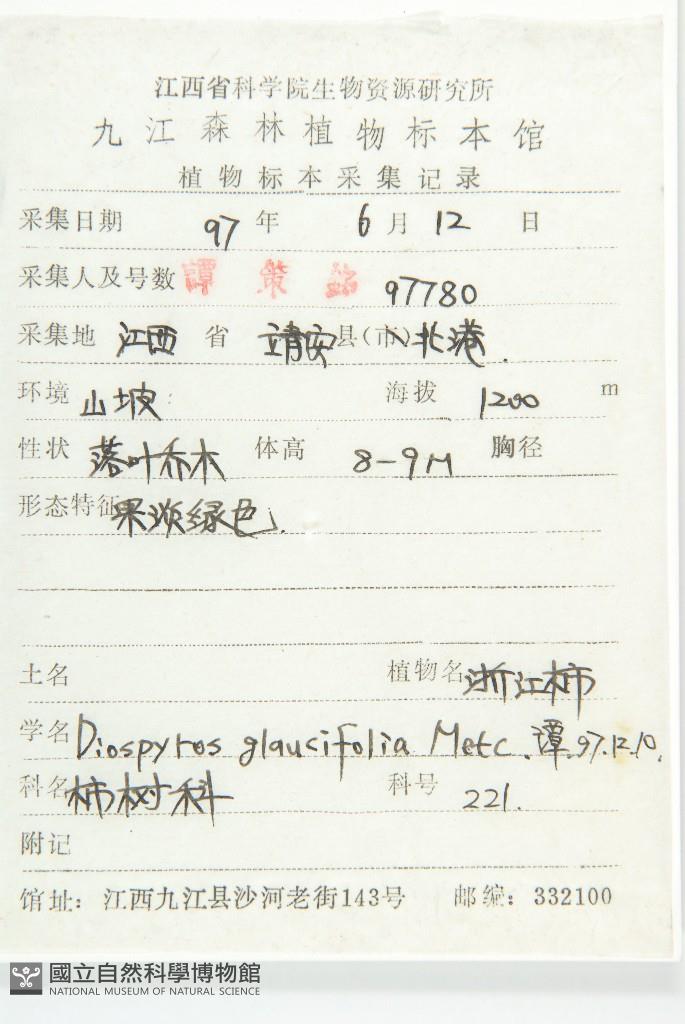 江西省科学院生物资源研究所
九江森林植物标本馆
植物标本采集记录
采集日期 97 年 6 月 12 日
采集人及号数 譚策銘 97780
采集地 江西 省 靖安 县(市) 北港.
环境 山坡 海拔 1200 m
性状 落叶乔木 体高 8-9M 胸径
形态特征 果淡绿色.
土名 植物名 浙江柿
学名 Diospyros glaucifolia Metc. 谭.97.12.10.
科名 柿树科 科号 221.
附记
馆址：江西九江县沙河老街143号 邮编：332100
國立自然科學博物館
NATIONAL MUSEUM OF NATURAL SCIENCE